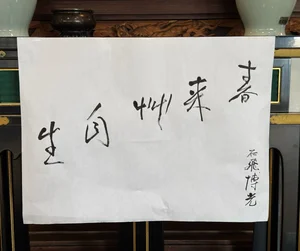 春来艸自生
石飛博光